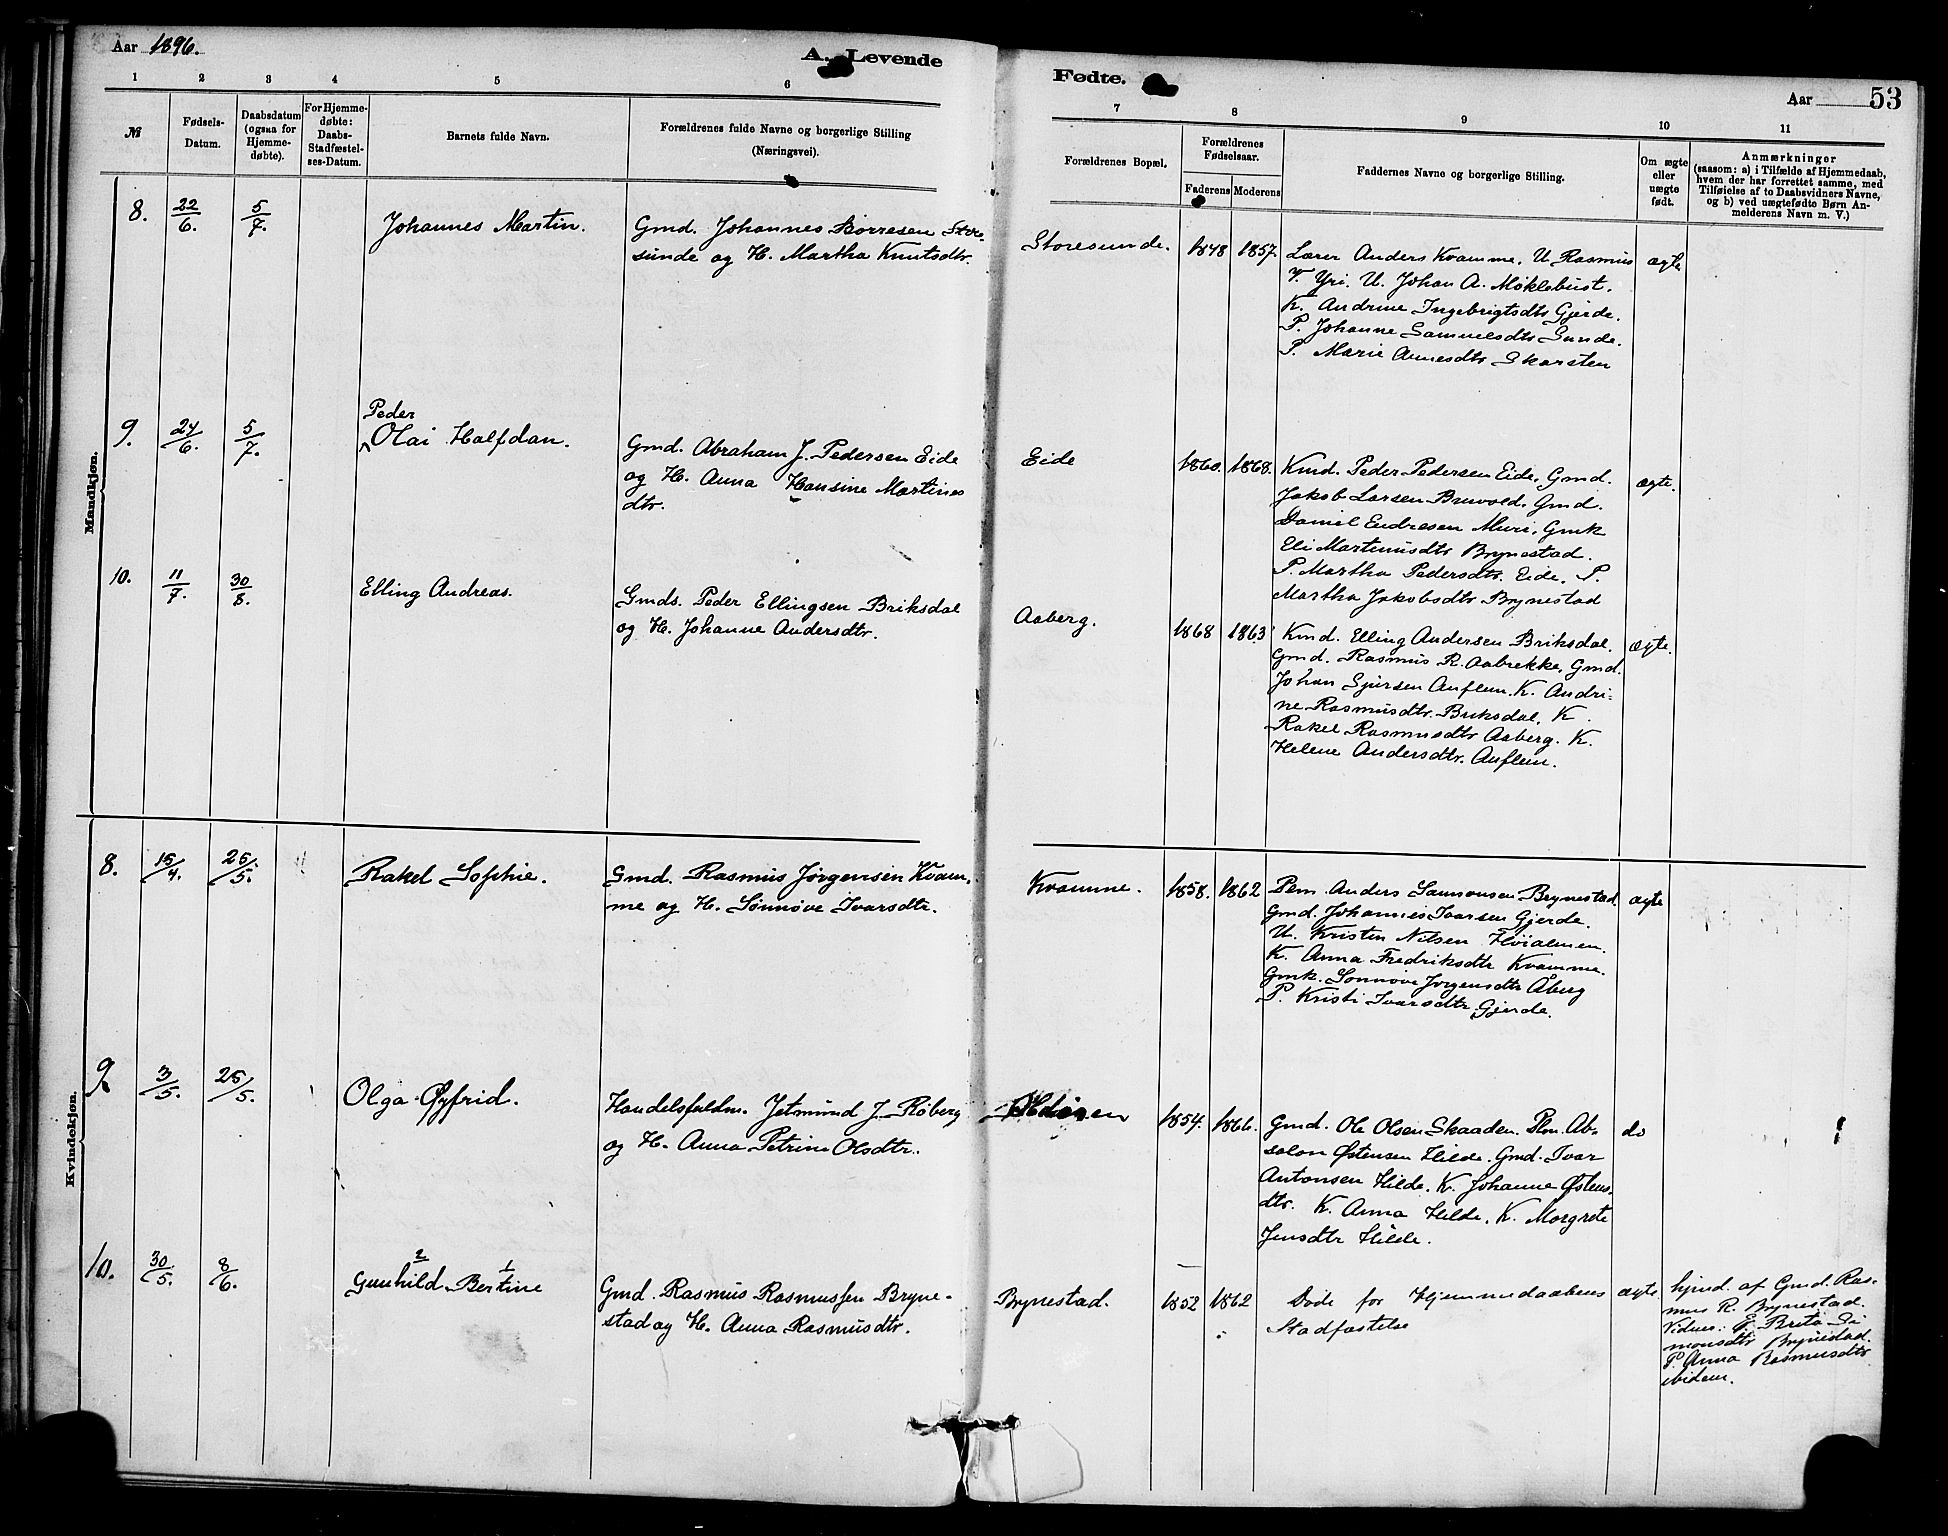 Aar 1896.
A. Levende
Fødte.
Aar 53
1 2 3 4 5 6
7 8 9 10 11
№
Fødsels-
Datum.
Daabsdatum
(ogsaa for
Hjemme-
døbte).
For Hjemme-
døbte:
Daabs-
Stadfæstel-
ses-Datum.
Barnets fulde Navn.
Forældrenes fulde Navne og borgerlige Stilling
(Næringsvei).
Forældrenes Bopæl.
Forældrenes
Fødselsaar.
Faderens Moderens
Faddernes Navne og borgerlige Stilling.
Om ægte
eller
uægte
født.
Anmærkninger
(saasom: a) i Tilfælde af Hjemmedaab,
hvem der har forrettet samme, med
Tilføielse af to Daabsvidners Navne,
og b) ved uægtefødte Børn An-
melderens Navn m. V.)
Mandkjøn.
8. 22/6. 5/7. Johannes Martin.
Gmd. Johannes Børresen Store-
sunde og H. Martha Knutsdtr.
Storesunde. 1848 1857.
Lærer Anders Kvamme, U. Rasmus
T. Yri. U. Johan A. Møklebust.
K. Andrine Ingebrigtsdtr Gjerde.
P. Johanne Samuelsdtr Sunde.
P. Marie Annesdtr Skarsten
ægte
9. 24/6. 5/7. Peder
Olai Halfdan.
Gmd. Abraham J. Pedersen Eide
og H. Anna Hansine Martines
dtr.
Eide 1860. 1868.
Kmd. Peder Pedersen Eide, Gmd.
Jakob Larsen Bruvold. Gmd.
Daniel Endresen Muri, Gmk
Eli Martinusdtr Brynestad.
P. Martha Pedersdtr. Eide, P.
Martha Jakobsdtr Brynestad
ægte.
10. 11/7. 30/8. Elling Andreas.
Gmds. Peder Ellingsen Briksdal
og H. Johanne Andersdtr.
Aaberg. 1868 1863
Kmd. Elling Andersen Briksdal.
Gmd. Rasmus R. Aabrekke, Gmd.
Johan Sjursen Auflem. K. Andri-
ne Rasmusdtr. Briksdal, K.
Rakel Rasmusdtr Aaberg. K.
Helene Andersdtr. Auflem.
ægte.
Kvindekjøn.
8. 15/4. 25/5. Rakel Sophie.
Gmd. Rasmus Jørgensen Kvam-
me og H. Sønnøve Ivarsdtr.
Kvamme. 1858. 1862
Pem. Anders Samonsen Brynestad
Gmd. Johannes Ivarsen Gjerde.
U. Kristen Nilsen Høialmen.
K. Anna Fredriksdtr Kvamme.
Gmk. Sønnøve Jørgensdtr Åberg
P. Kristi Ivarsdtr. Gjerde.
ægte
9. 3/5. 25/5. Olga Øyfrid.
Handelsfuldm. Jetmund J. Røberg
og H. Anna Petrine Olsdtr.
1854. 1866.
Gmd. Ole Olsen Skaaden. Plm. Ab-
salon Østensen Hilde. Gmd. Ivar
Antonsen Hilde, K. Johanne Østens-
dtr. K. Anna Hilde. K. Margrete
Jensdtr Hilde.
do
10. 30/5. 8/6. 2 1
Gunhild Bertine
Gmd. Rasmus Rasmussen Bryne-
stad og H. Anna Rasmusdtr.
Brynestad. 1852 1862
Døde før Hjemmedaabens
Stadfæstelse
ægte.
hjmd. af Gmd. Ras-
mus R. Brynestad.
Vidner: G. Brita Si
monsdtr Brynestad.
P. Anna Rasmusdtr
ibidem.